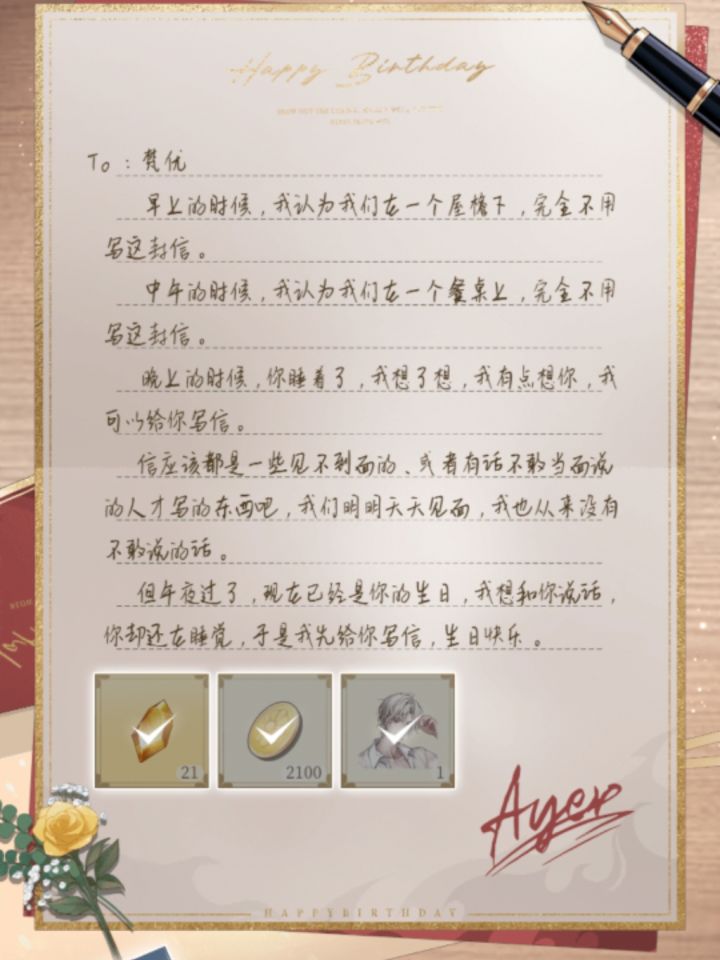 Happy Birthday
To：梵优
早上的时候，我认为我们在一个屋檐下，完全不用
写这封信。
中午的时候，我认为我们在一个餐桌上，完全不用
写这封信。
晚上的时候，你睡着了，我想了想，我有点想你，我
可以给你写信。
信应该都是一些见不到面的、或者有话不敢当面说
的人才写的东西吧，我们明明天天见面，我也从来没有
不敢说的话。
但午夜过了，现在已经是你的生日，我想和你说话，
你却还在睡觉，于是我先给你写信，生日快乐。
21
2100
1
Ayer
HAPPYBIRTHDAY